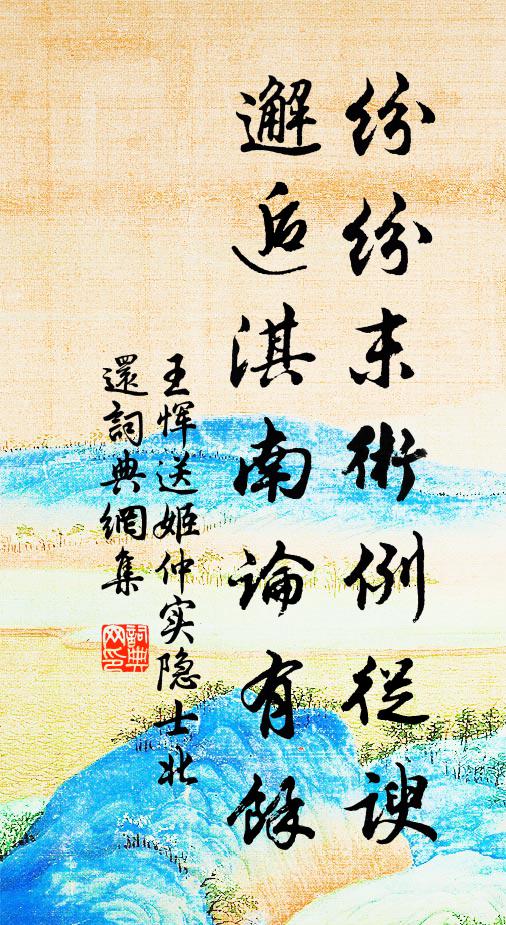 紛紛末術例從諛
邂逅淇南論有餘
王惲送姬仲实隐士北
還詞典網集
詞典网印